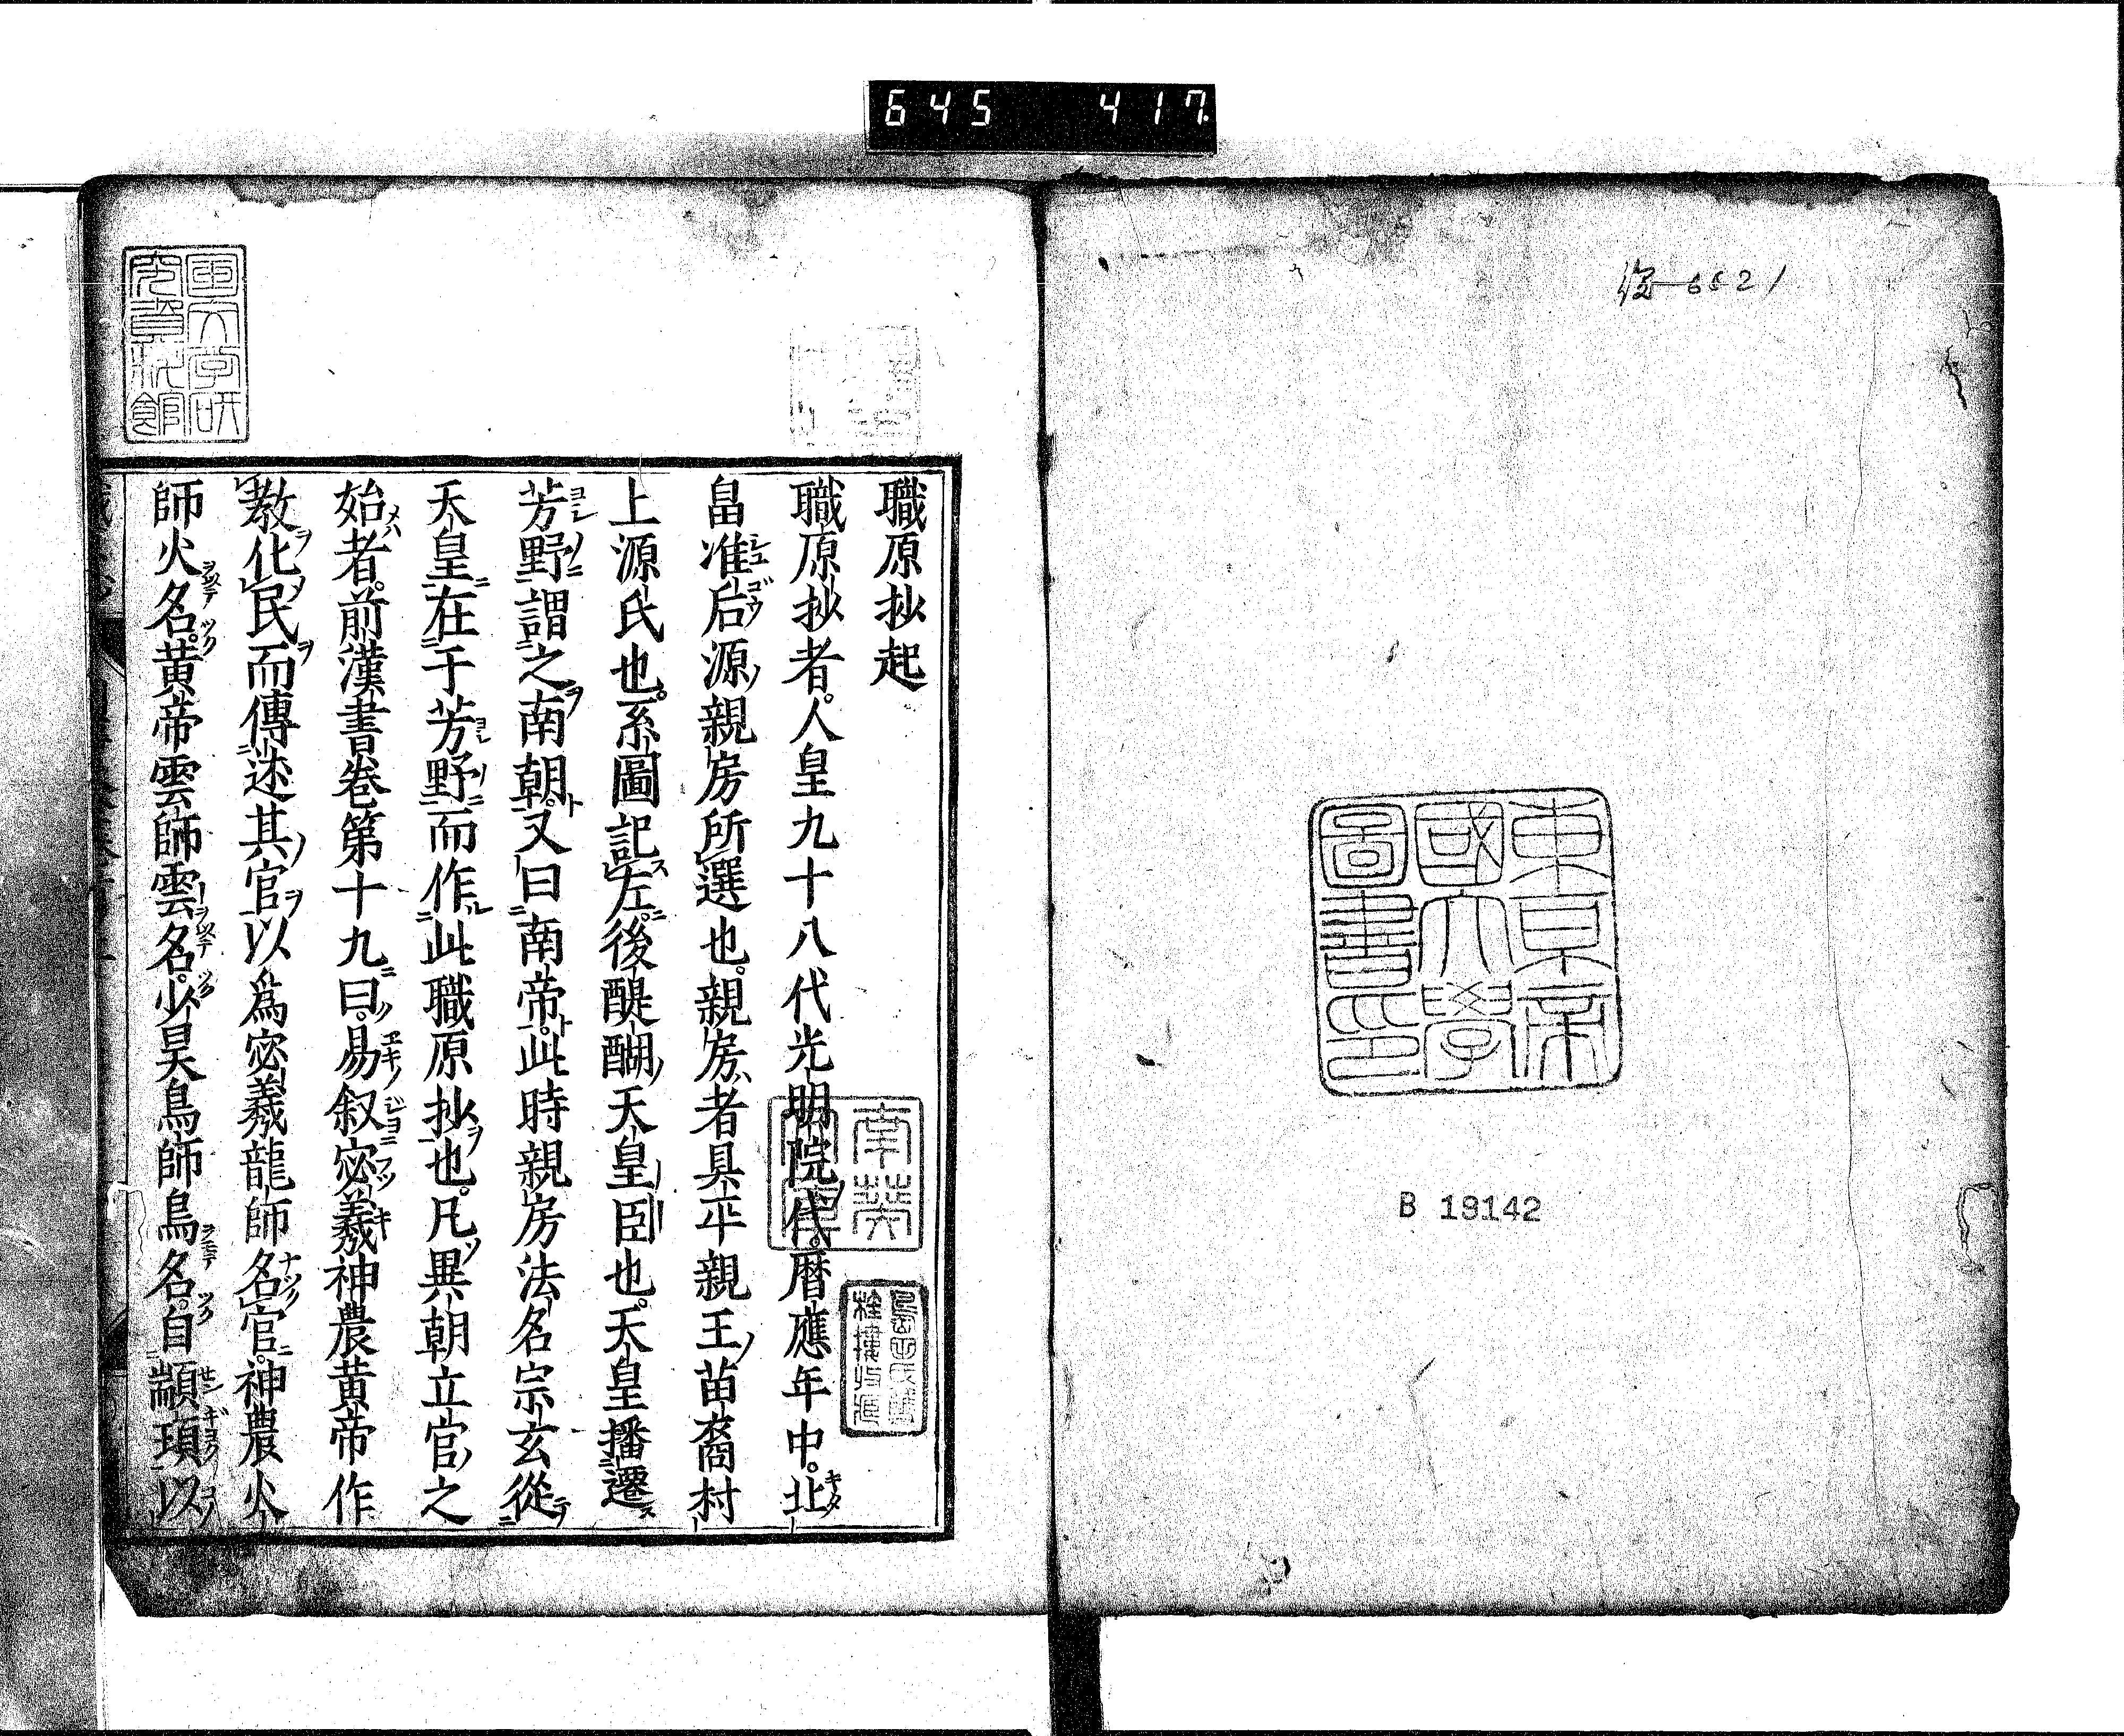 645 417
6821
東京帝
國大學
圖書印
B 19142
職原抄起
職原抄者。人皇九十八代光明院御代。暦應年中。北
畠准后源親房所選也。親房者具平親王苗裔村
上源氏也。系圖記左。後醍醐天皇臣也。天皇播遷
芳野謂之南朝。又曰南帝。此時親房法名宗玄從
天皇在于芳野而作此職原抄也。凡異朝立官之
始者。前漢書卷第十九曰。易叙宓羲神農黄帝作
教化民而傳述其官以爲宓羲龍師名官。神農火
師火名。黄帝雲師雲名。少昊鳥師鳥名。自顓頊以
国文学研
究資料館